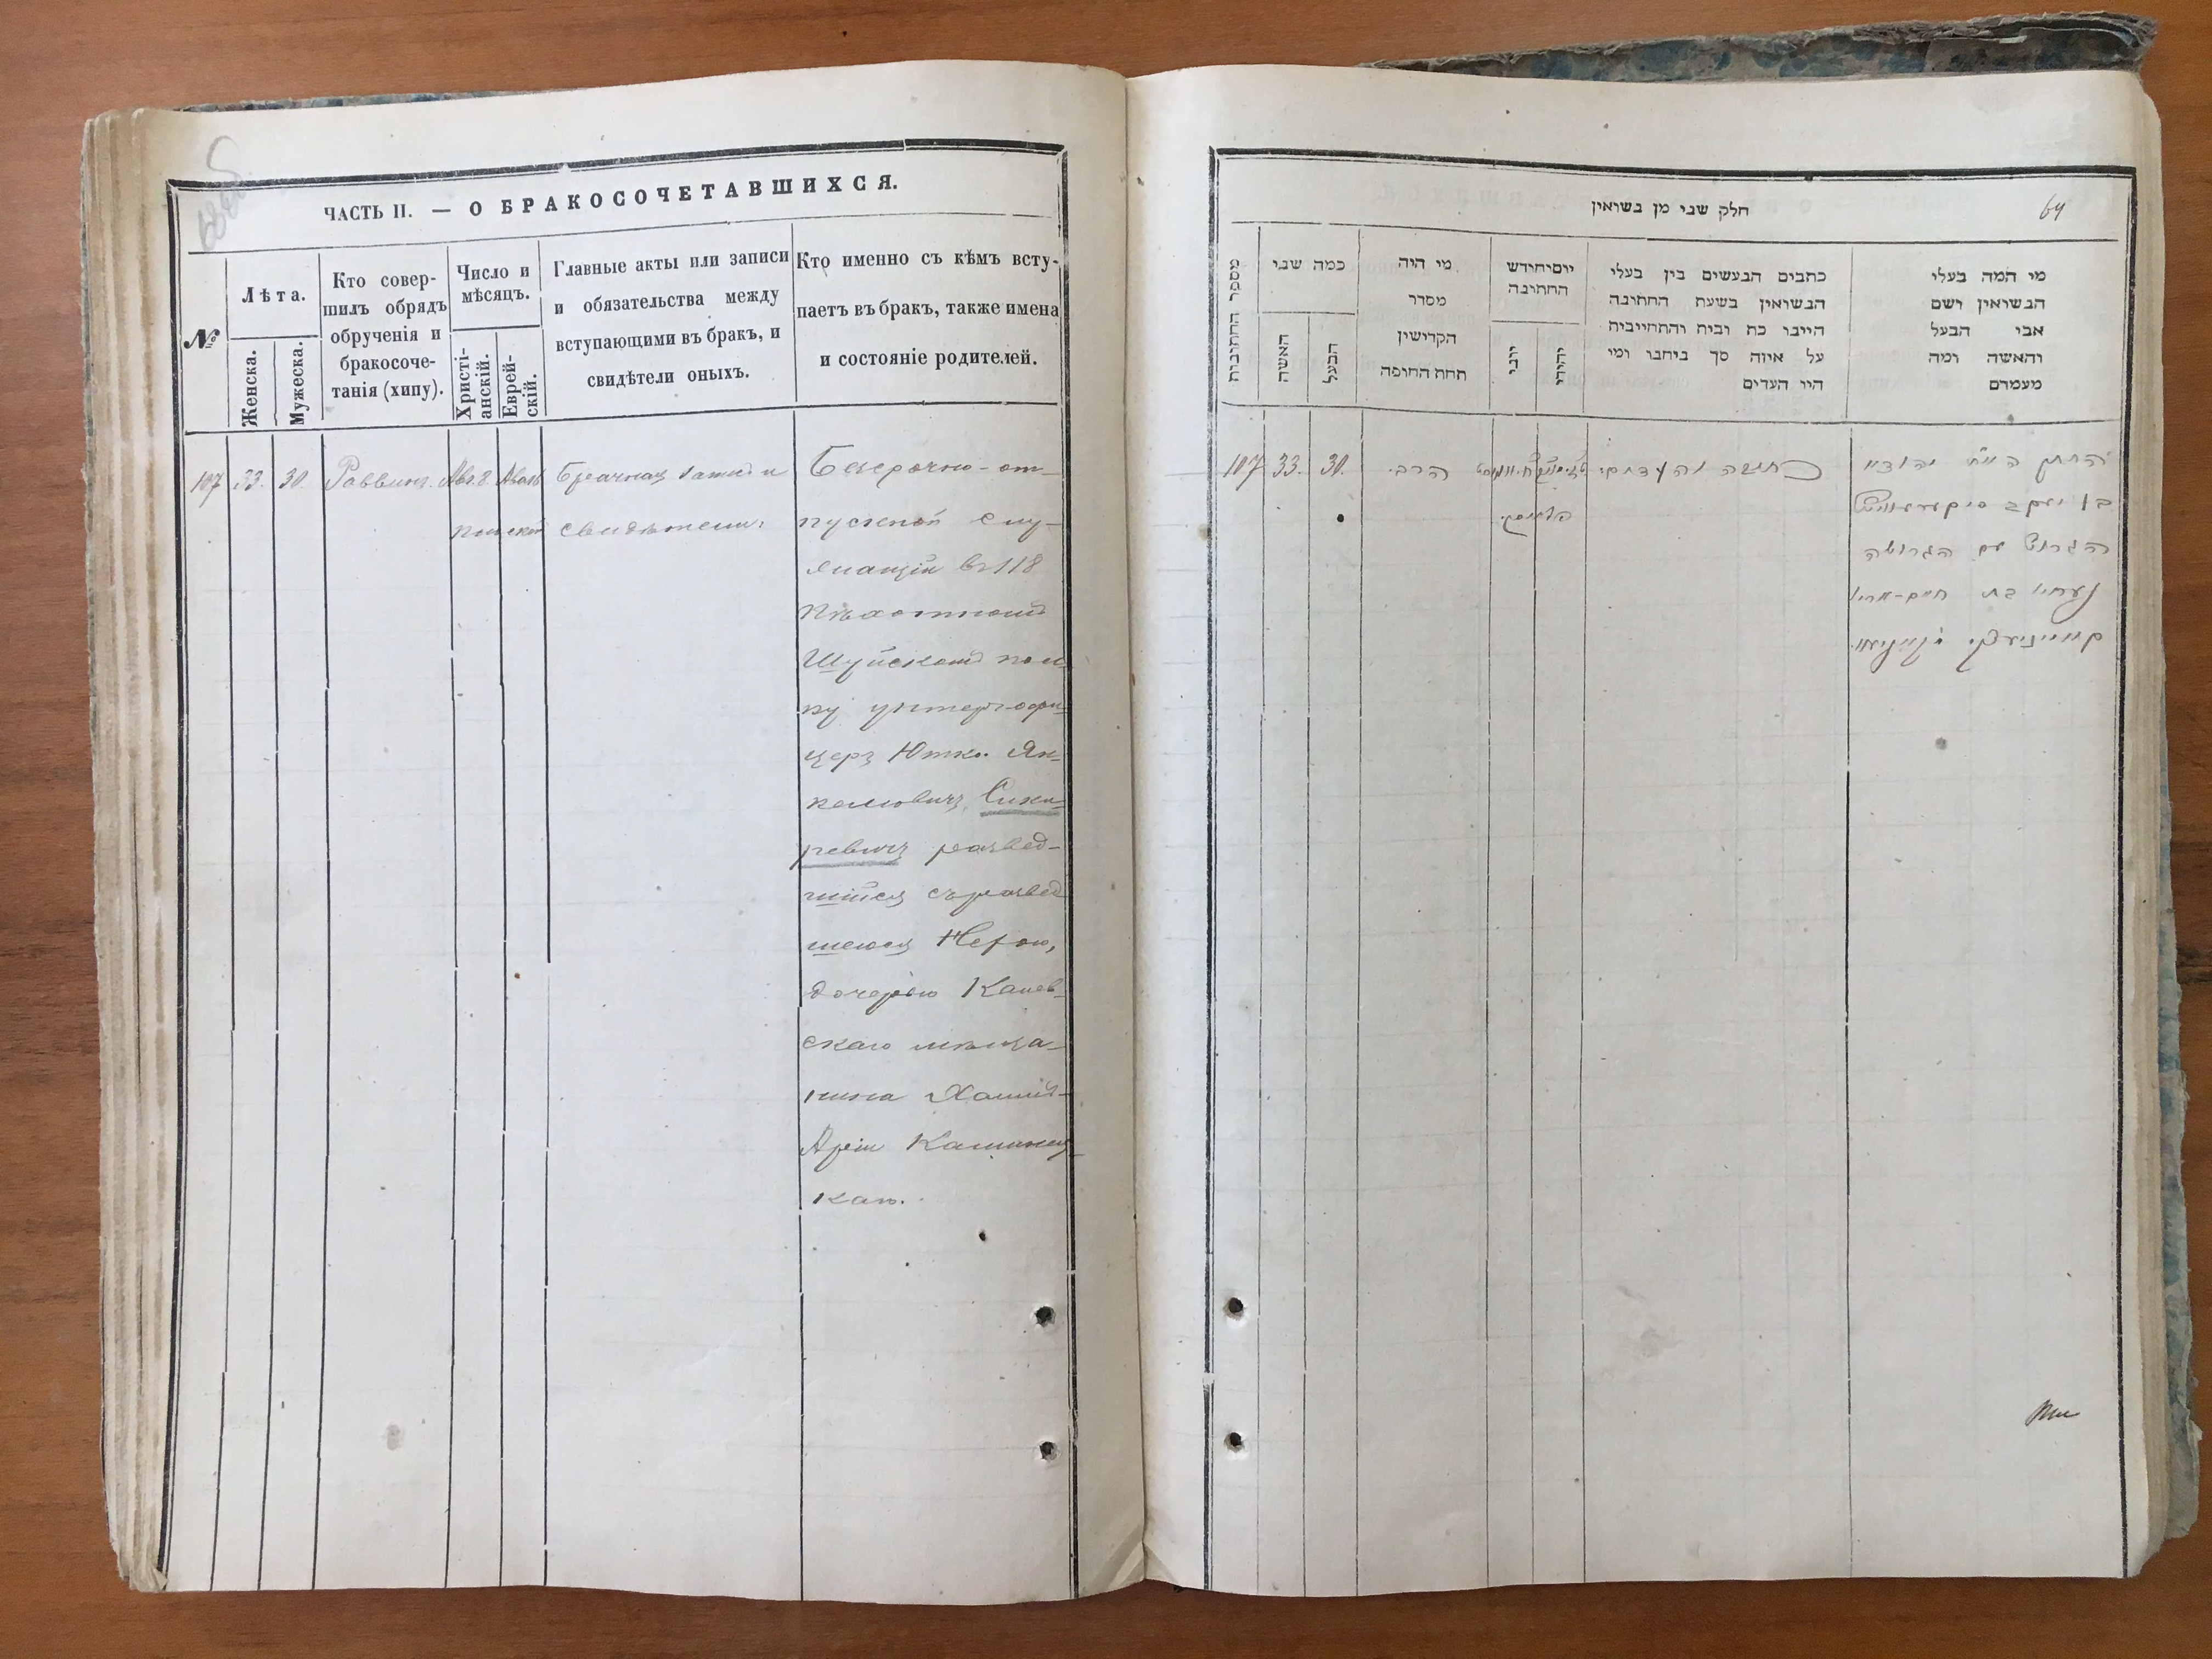 ЧАСТЬ II. — О БРАКОСОЧЕТАВШИХСЯ.
№
Лѣта.
Женска.
Мужеска.
Кто совер-
шилъ обрядъ
обрученія и
бракосоче-
танія (хипу).
Число и
мѣсяцъ.
Христі-
анскій.
Еврей-
скій.
Главные акты или записи
и обязательства между
вступающими въ бракъ, и
свидѣтели оныхъ.
Кто именно съ кѣмъ всту-
паетъ въ бракъ, также имена
и состояніе родителей.
107 33. 30. Раввинъ. Авг. 8.
Брачная запись и
свидѣтели
Безсрочно-от-
пускной слу-
жащій въ 118
Пѣхотномъ
Шуйскомъ пол-
ку унтеръ-офи-
церъ Ютко Ян-
келіовичъ Сики-
ревичъ развед-
шійся съ развед-
шеюся Нехою,
дочерью Канев-
скаго мѣща-
нина Хаимъ-
Арія Каминец-
каго.
חלק שני מן נשואין
64
מספר החתיבות
כמה שני
האשה
הבעל
מי היה
מסדר
הקדישין
תחת החופה
יום וחודש
החתונה
יוני
יהודי
כתבים הנעשים בין בעלי
הנשואין בשעת החתונה
היינו כת ובית והתחייביה
על איזה סך ניתנו ומי
היו העדים
מי המה בעלי
הנשואין ושם
אבי הבעל
והאשה ומה
מעמדם
107 33. 30. הרב.
כתובה והעדים.
בן יעקב סיקערעוויטש
הגרוש עם הגרושה
נעחי בת חיים-אריי